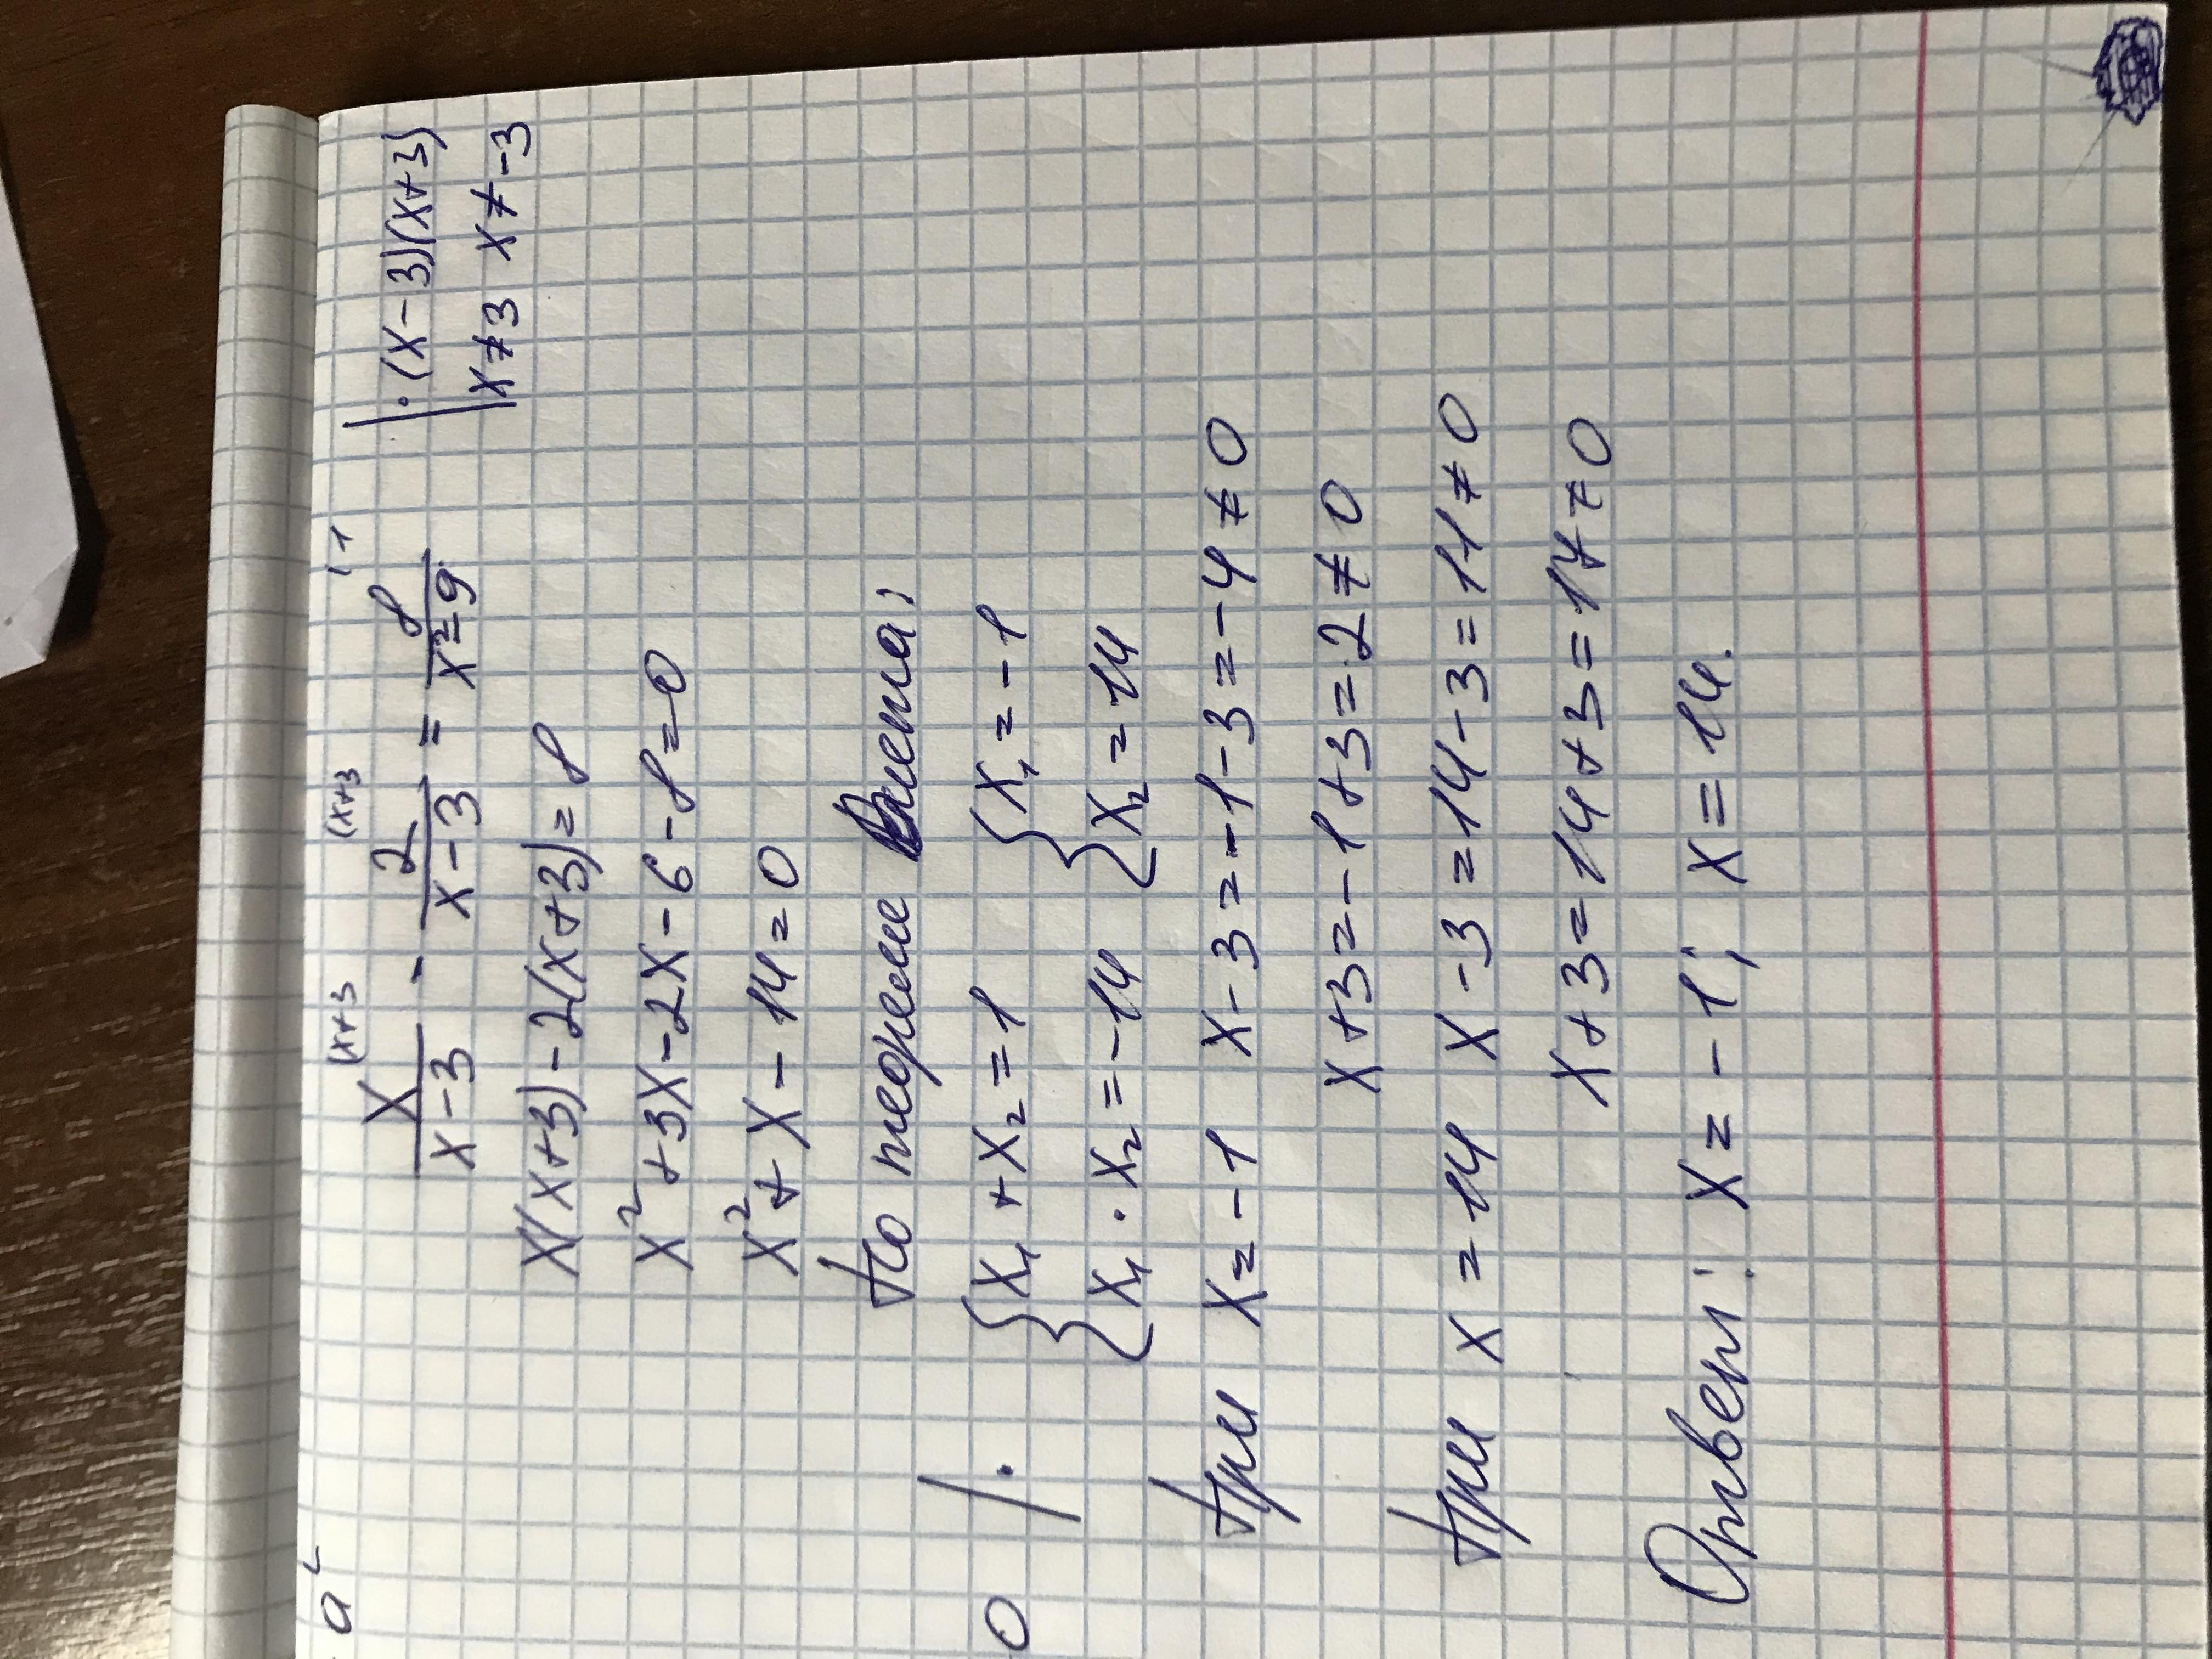 a²
x/(x-3) (x+3 - 2/(x-3) (x+3 = 8/(x²-9) (1 | · (x-3)(x+3)
x≠3 x≠-3
x(x+3)-2(x+3)=8
x²+3x-2x-6-8=0
x²+x-14=0
По теореме Виета;
0 | · { x₁+x₂=1 { x₁=-1
x₁·x₂=-14 x₂=14
При x=-1 x-3=-1-3=-4≠0
x+3=-1+3=2≠0
При x=14 x-3=14-3=11≠0
x+3=14+3=17≠0
Ответ: x=-1; x=14.